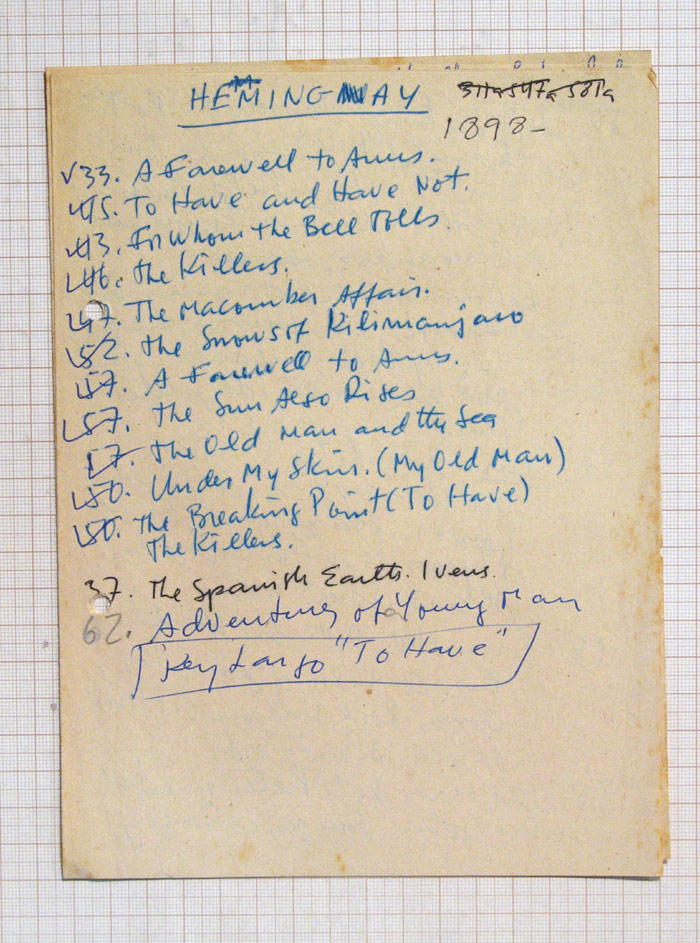 HEMINGWAY
1898-
33. A Farewell to Arms.
45. To Have and Have Not.
43. For Whom the Bell Tolls.
46. The Killers.
47. The Macomber Affair.
52. The Snows of Kilimanjaro
57. A Farewell to Arms.
57. The Sun Also Rises
57. The Old Man and the Sea
50. Under My Skin. (My Old Man)
50. The Breaking Point (To Have)
The Killers.
37. The Spanish Earth. Ivens.
62. Adventures of Young Man
Key Largo "To Have"